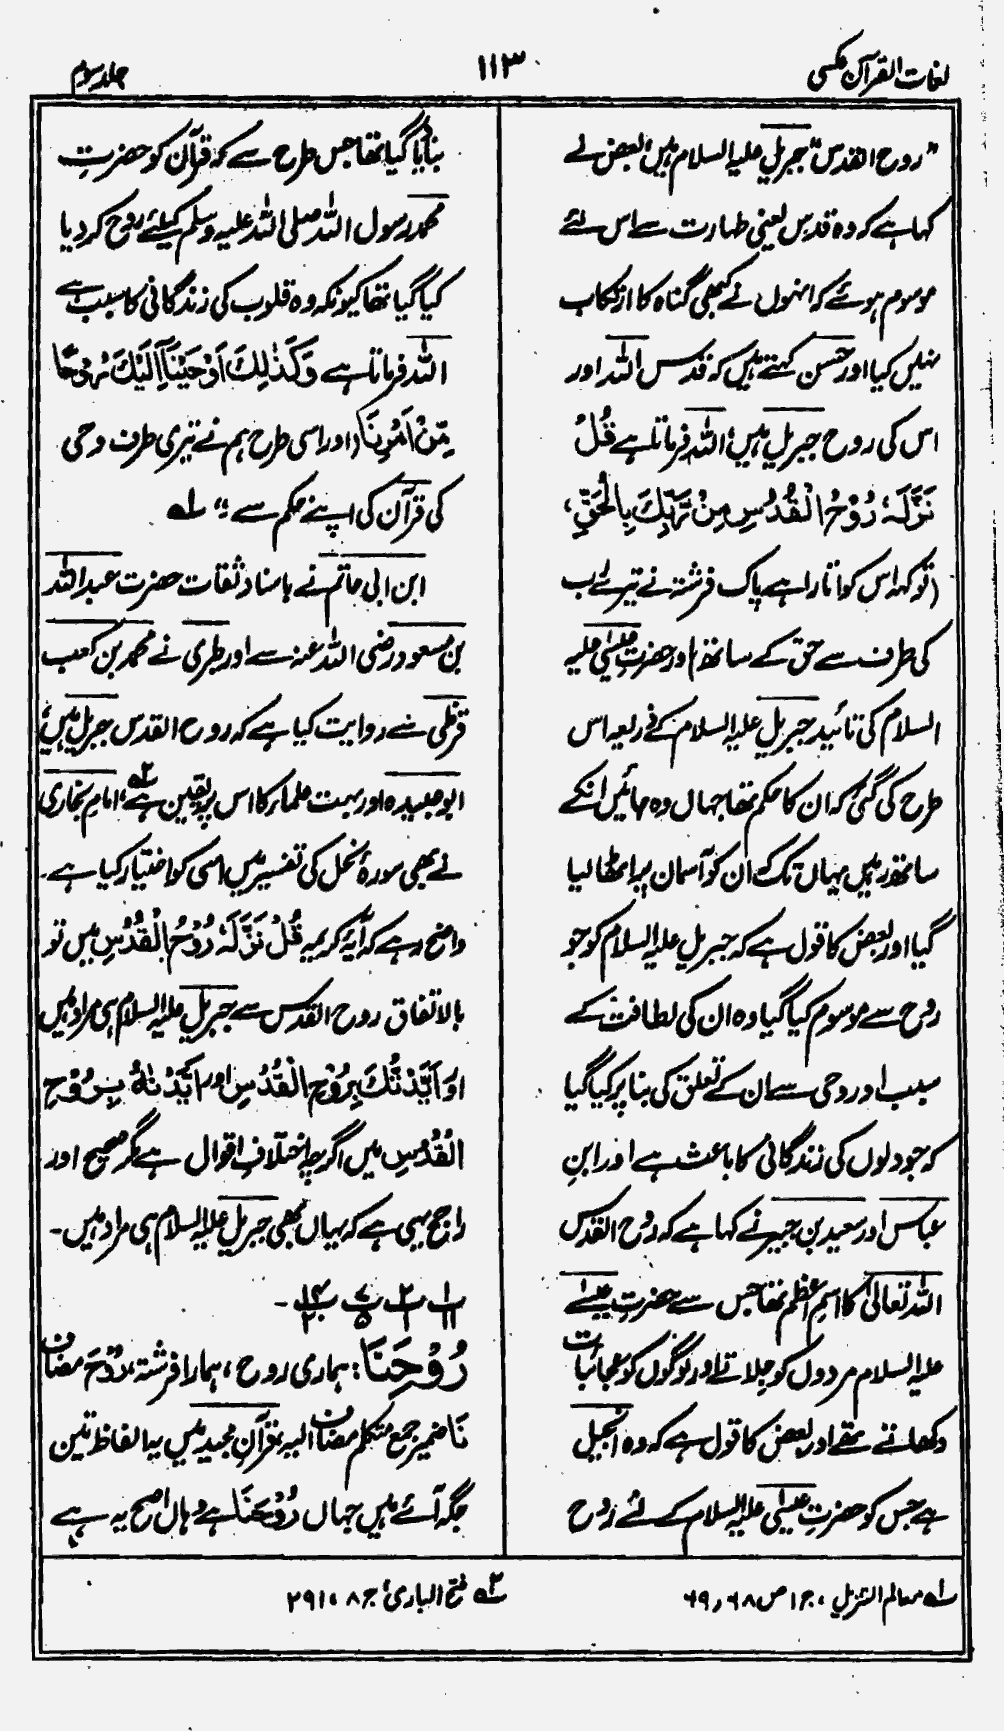 لغات القرآن عکسی
۱۱۳
جلد سوم
"روح القدس" جبریل علیہ السلام ہیں، بعض نے
کہا ہے کہ وہ قدس یعنی طہارت سے اس لئے
موسوم ہوئے کہ انہوں نے کبھی گناہ کا ارتکاب
نہیں کیا اور حسن کہتے ہیں کہ قدس اللہ اور
اس کی روح جبریل ہیں، اللہ فرماتا ہے قُلْ
نَزَّلَہٗ رُوْحُ الْقُدُسِ مِنْ رَّبِّکَ بِالْحَقِّ،
(تو کہہ اس کو اتارا ہے پاک فرشتہ نے تیرے رب
کی طرف سے حق کے ساتھ) اور حضرت عیسیٰ علیہ
السلام کی تائید جبریل علیہ السلام کے ذریعہ اس
طرح کی گئی کہ ان کا حکم تھا جہاں وہ جائیں انکے
ساتھ رہیں یہاں تک ان کو آسمان پر اٹھا لیا
گیا اور بعض کا قول ہے کہ جبریل علیہ السلام کو جو
روح سے موسوم کیا گیا وہ ان کی لطافت کے
سبب اور وحی سے ان کے تعلق کی بنا پر کیا گیا
کہ جو دلوں کی زندگانی کا باعث ہے اور ابن
عباس اور سعید بن جبیر نے کہا ہے کہ روح القدس
اللہ تعالیٰ کا اسمِ اعظم تھا جس سے حضرتِ عیسےٰ
علیہ السلام مردوں کو جلاتے اور لوگوں کو عجائبات
دکھلاتے تھے اور بعض کا قول ہے کہ وہ انجیل
ہے جس کو حضرتِ عیسیٰ علیہ السلام کے لئے روح
بنایا گیا تھا جس طرح سے کہ قرآن کو حضرتِ
محمد رسول اللہ صلی اللہ علیہ وسلم کیلئے روح کر دیا
کیا گیا تھا کیونکہ وہ قلوب کی زندگانی کا سبب ہے
اللہ فرماتا ہے وَکَذٰلِکَ اَوْحَیْنَآ اِلَیْکَ رُوْحًا
مِّنْ اَمْرِنَا (اور اسی طرح ہم نے تیری طرف وحی
کی قرآن کی اپنے حکم سے)؛" ۱؎
ابن ابی حاتم نے باسناد ثقات حضرت عبد اللہ
بن مسعود رضی اللہ عنہ سے اور طبری نے محمد بن کعب
قرظی سے روایت کیا ہے کہ روح القدس جبریل ہیں،
ابو عبیدہ اور بہت علماء کا اس پر یقین ہے، ۲؎ امام بخاری
نے بھی سورۂ نحل کی تفسیر میں اسی کو اختیار کیا ہے۔
واضح رہے کہ آیۂ کریمہ قُلْ نَزَّلَہٗ رُوْحُ الْقُدُسِ میں تو
بالاتفاق روح القدس سے جبریل علیہ السلام ہی مراد ہیں
اور اَیَّدْتُّکَ بِرُوْحِ الْقُدُسِ اور اَیَّدْنٰہُ بِرُوْحِ
الْقُدُسِ میں اگرچہ اختلافِ اقوال ہے مگر صحیح اور
راجح یہی ہے کہ یہاں بھی جبریل علیہ السلام ہی مراد ہیں۔
رُوْحَنَا: ہماری روح، ہمارا فرشتہ، رُوْحَ مضاف
نَا ضمیر جمع متکلم مضاف الیہ، قرآن مجید میں یہ الفاظ تین
جگہ آئے ہیں جہاں رُوْحَنَا ہے وہاں اصح یہ ہے
۱؎ معالم التنزیل، ج ۱ ص ۶۸، ۶۹
۲؎ فتح الباری، ج ۸، ۲۹۱